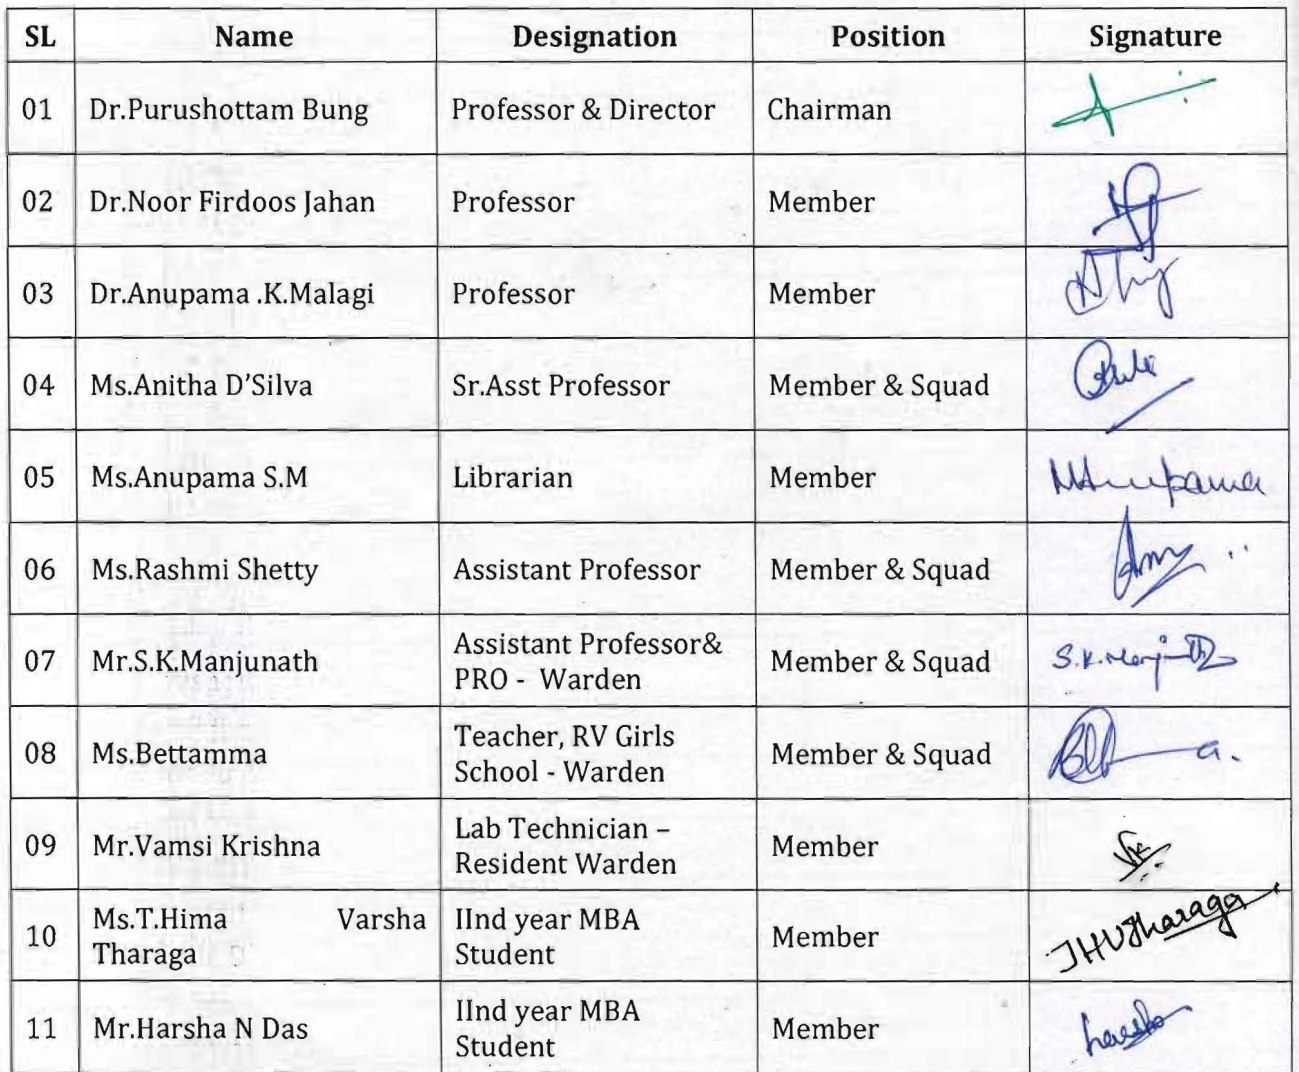 SL Name Designation Position Signature
01 Dr.Purushottam Bung Professor & Director Chairman
02 Dr.Noor Firdoos Jahan Professor Member
03 Dr.Anupama .K.Malagi Professor Member
04 Ms.Anitha D'Silva Sr.Asst Professor Member & Squad
05 Ms.Anupama S.M Librarian Member
06 Ms.Rashmi Shetty Assistant Professor Member & Squad
07 Mr.S.K.Manjunath Assistant Professor& Member & Squad S.K.Manjunath
PRO - Warden
08 Ms.Bettamma Teacher, RV Girls Member & Squad
School - Warden
09 Mr.Vamsi Krishna Lab Technician – Member
Resident Warden
10 Ms.T.Hima Varsha IInd year MBA Member THVTharaga
Tharaga Student
11 Mr.Harsha N Das IInd year MBA Member
Student